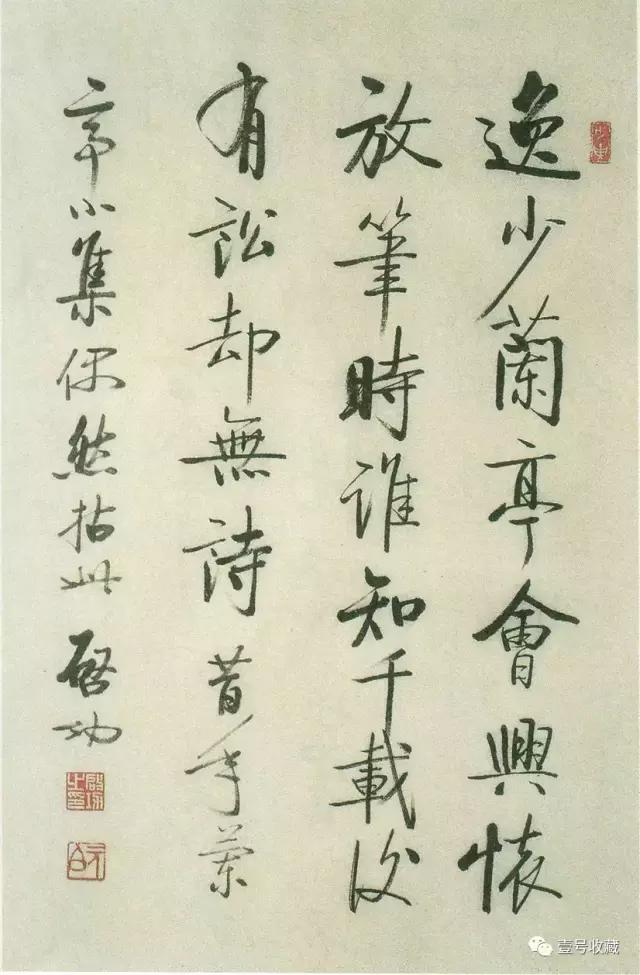 逸少蘭亭會興懷
放筆時誰知千載後
有訟却無詩 昔年蘭
亭小集偶然拈此 啓功
啟功之印
元白
壹号收藏